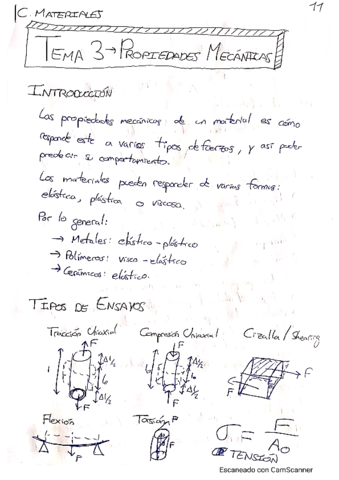 C. MATERIALES
11
TEMA 3→PROPIEDADES MECÁNICAS
INTRODUCCIÓN
Las propiedades mecánicas de un material es cómo
responde este a varios tipos de fuerzas, y así poder
predecir su comportamiento.
Los materiales pueden responder de varias formas:
elástica, plástica o viscosa.
Por lo general:
→ Metales: elástico-plástico
→ Polímeros: visco-elástico
→ Cerámicos: elástico.
TIPOS DE ENSAYOS
Tracción Uniaxial Compresión Uniaxial Cizalla/Shearing
F F
Δl/2 Δl/2
l l₀ l₀ l
F
F
Δl/2 Δl/2
F F
Flexión Torsión
F
σ = F/A₀
TENSIÓN
Escaneado con CamScanner